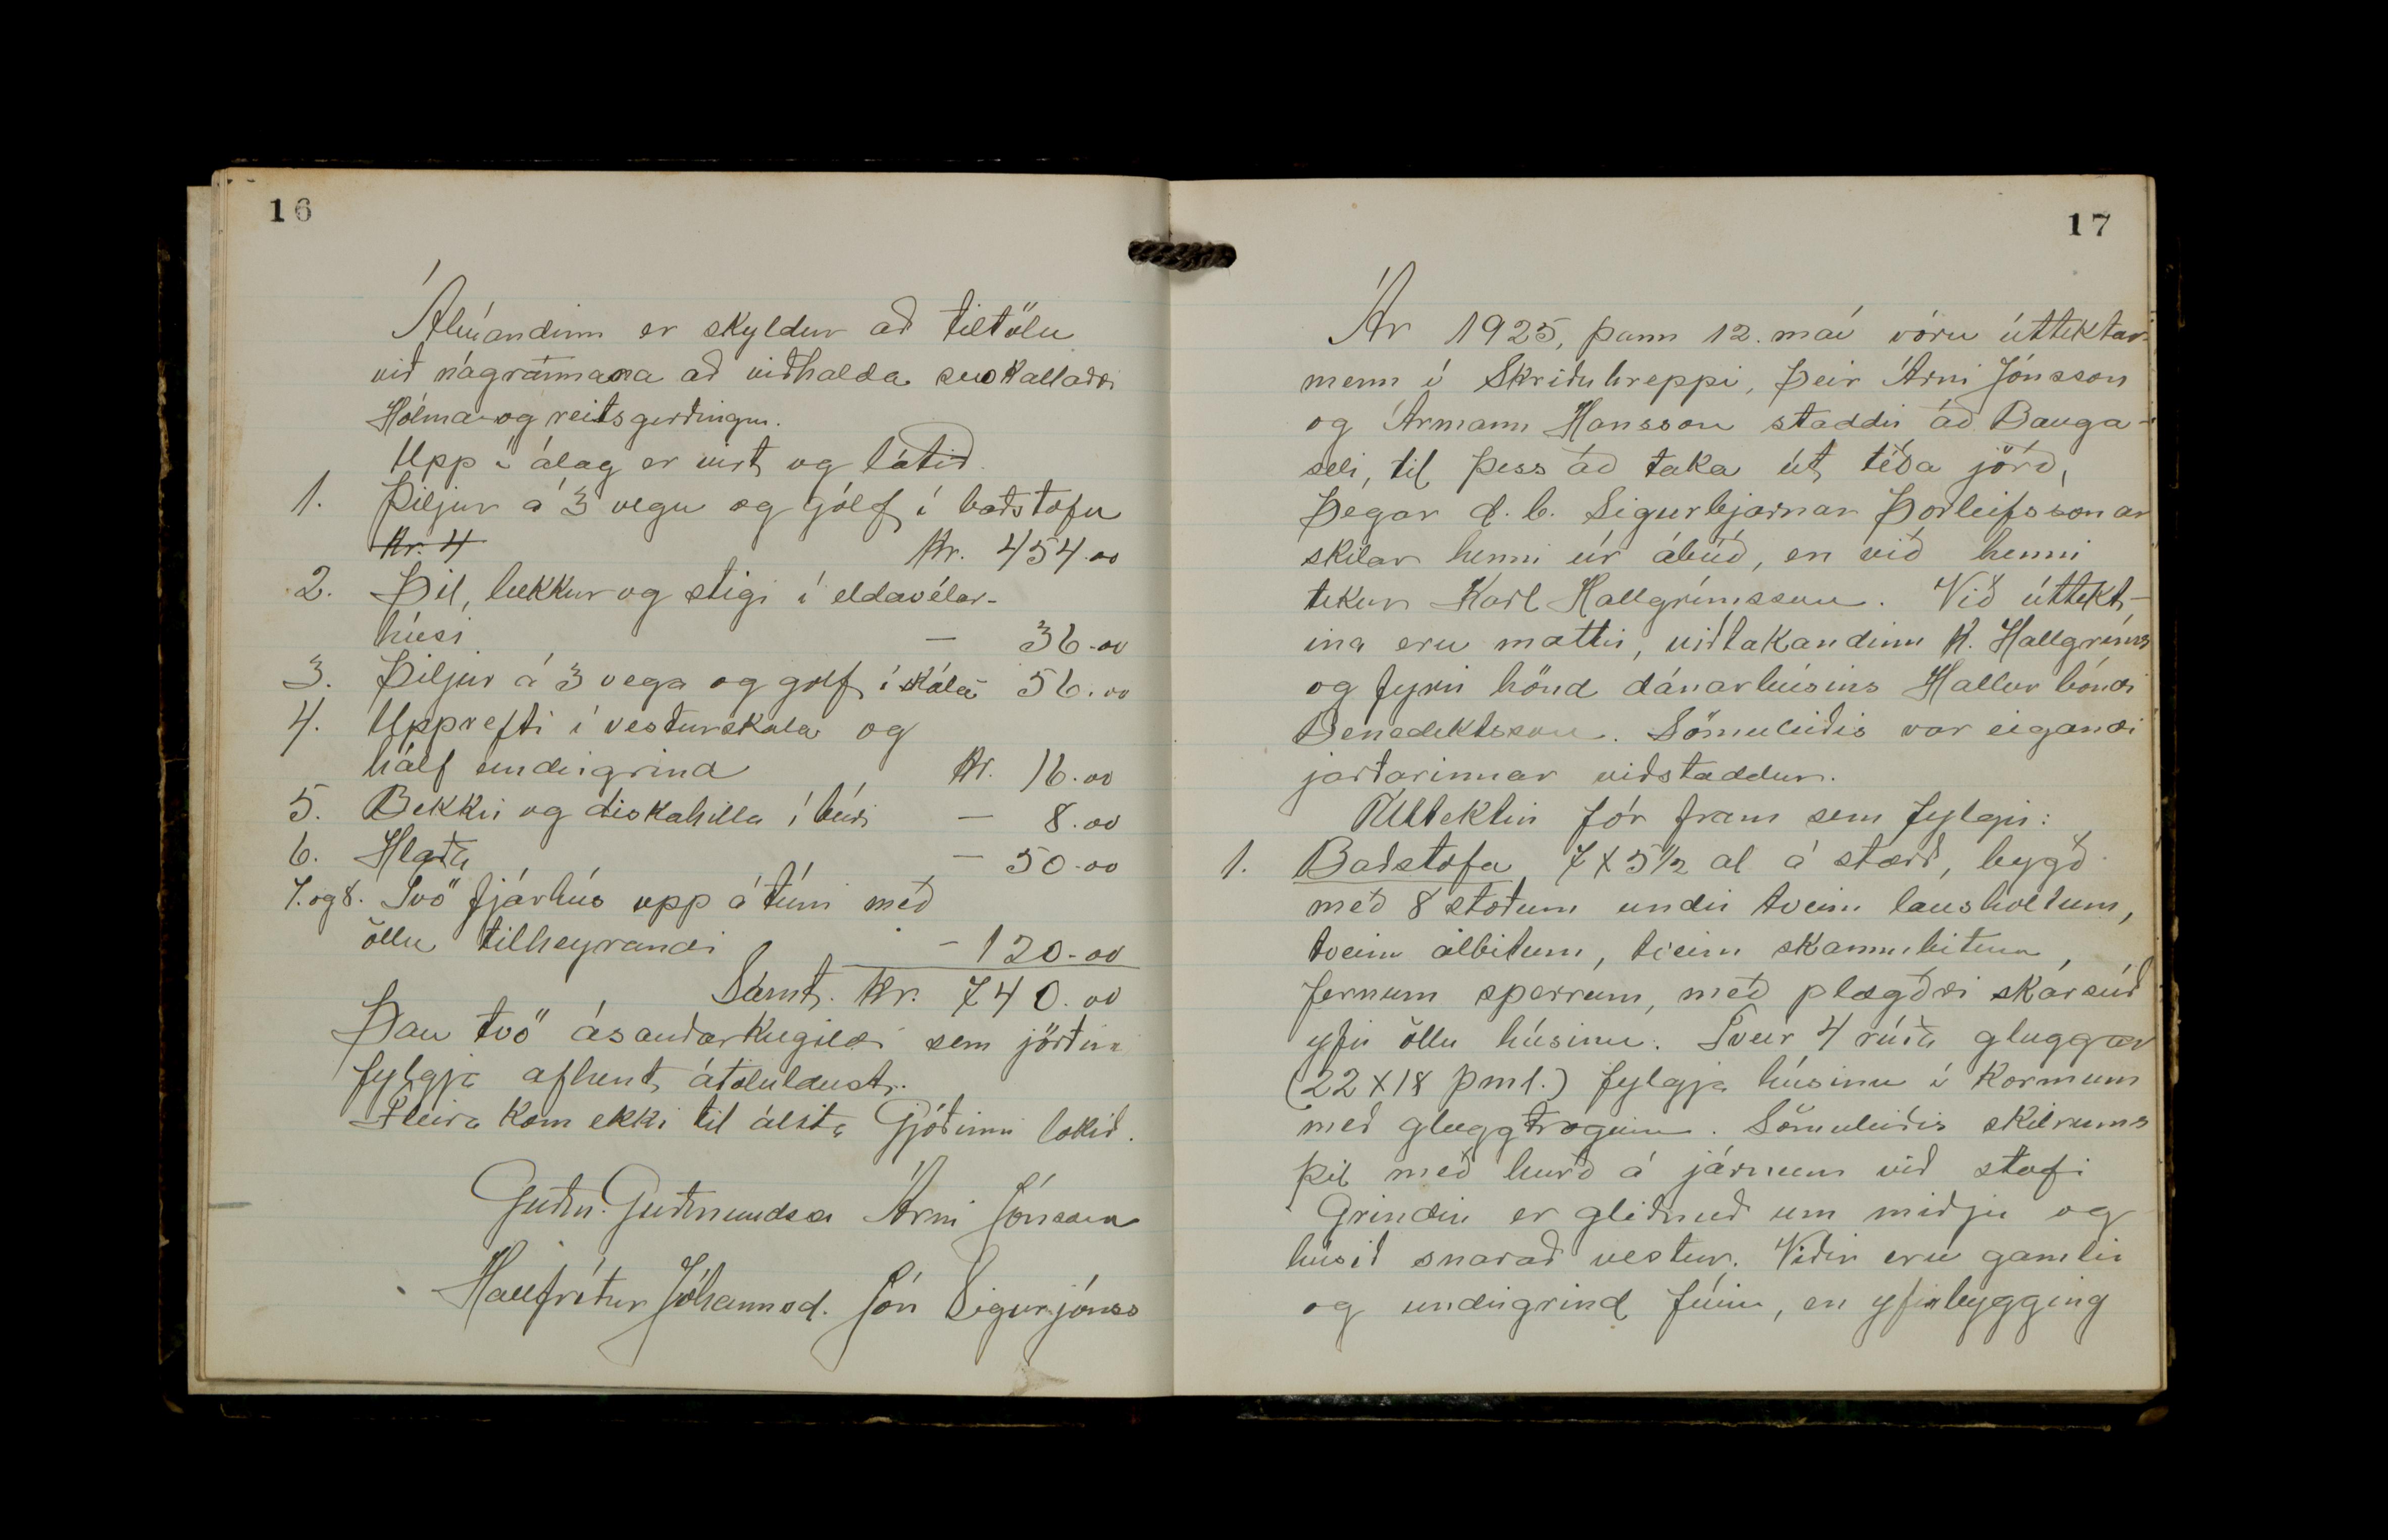 16
Ábúandinn er skyldur að tiltölu
við nágrannana að viðhalda svokallaðri
Hólma- og reitsgirðingu.
Upp í álag er virt og látið
1. Þiljur á 3 vegu og gólf í baðstofu
kr. 4 kr. 454.00
2. Þil, bekkur og stigi í eldavélar-
húsi — 36.00
3. Þiljur á 3 vega og gólf í skála 56.00
4. Upprefti í vesturskála og
hálf undirgrind kr. 16.00
5. Bekkir og diskahilla í búri — 8.00
6. Hlaða — 50.00
7. og 8. Tvö fjárhús upp á túni með
öllu tilheyrandi — 120.00
Samt. kr. 740.00
Þau tvö ásauðarkúgildi sem jörðinni
fylgja afhent átölulaust.
Fleira kom ekki til álita Gjörðinni lokið.
Guðm. Guðmundsson Árni Jónsson
Hallfríður Jóhannsd. Jón Sigurjónss
17
Ár 1925, þann 12. maí vóru úttektar-
menn í Skriðuhreppi, þeir Árni Jónsson
og Ármann Hansson staddir að Bauga-
seli, til þess að taka út téða jörð,
Þegar d. b. Sigurbjarnar Þorleifssonar
skilar henni úr ábúð, en við henni
tekur Karl Hallgrímsson. Við úttekt-
ina eru mættir, viðtakandinn K. Hallgríms
og fyrir hönd dánarbúsins Hallur bóndi
Benediktsson. Sömuleiðis var eigandi
jarðarinnar viðstaddur.
Úttektin fór fram sem fylgir:
1. Baðstofa 7 x 5 1/2 al á stærð, bygð
með 8 stoðum undir tveim lausholtum,
tveim álbitum, tveim skammbitum,
fernum sperrum, með plægðri skarsúð
yfir öllu húsinu. Tveir 4 rúða gluggar
(22 x 18 þml.) fylgja húsinu í körmum
með gluggtrogum. Sömuleiðis skilrúms
þil með hurð á járnum við stafi
Grindin er gliðnuð um miðju og
húsið snarað vestur. Viðir eru gamlir
og undirgrind fúin, en yfirbygging